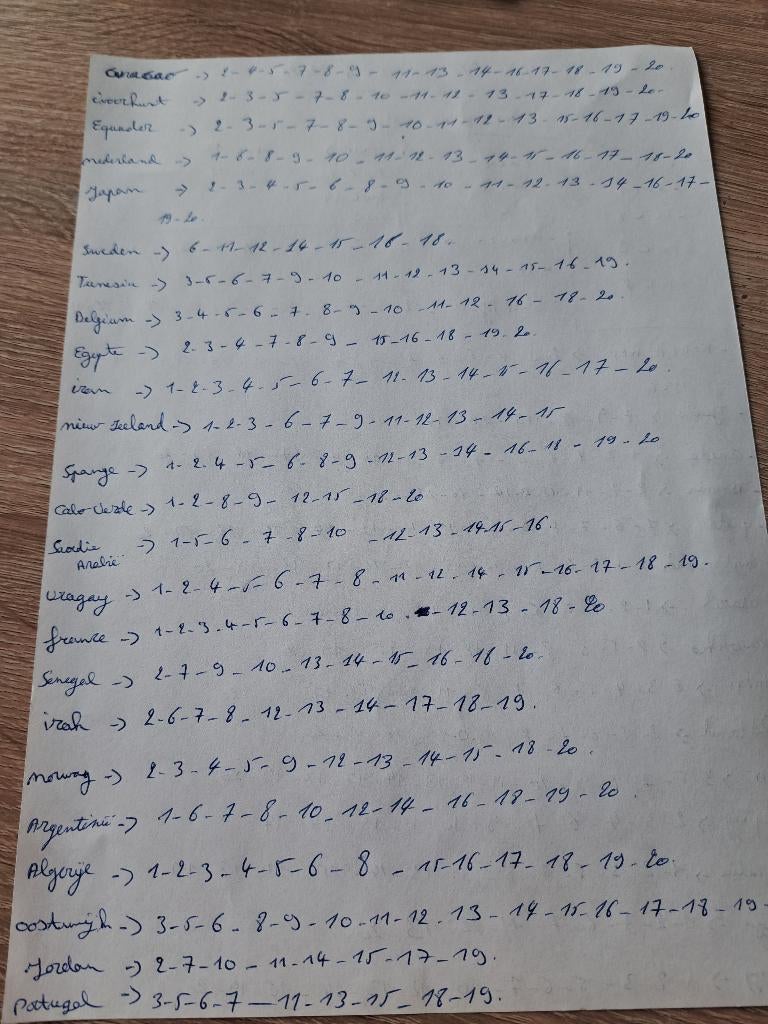 Curacao -> 2-4-5-7-8-9-11-13-14-16-17-18-19-20.
ivoorkunt -> 2-3-5-7-8-10-11-12-13-17-18-19-20-
Equador -> 2-3-5-7-8-9-10-11-12-13-15-16-17-19-20
nederland -> 1-6-8-9-10-11-12-13-14-15-16-17-18-20
Japan -> 2-3-4-5-6-8-9-10-11-12-13-14-16-17-
19-20.
Sweden -> 6-11-12-14-15-16-18.
Tunesia -> 3-5-6-7-9-10-11-12-13-14-15-16-19.
Belgium -> 3-4-5-6-7-8-9-10-11-12-16-18-20
Egypte -> 2-3-4-7-8-9-15-16-18-19-20
iran -> 1-2-3-4-5-6-7-12-13-14-15-16-17-20
nieuw Zeeland -> 1-2-3-6-7-9-11-12-13-14-15
Spange -> 1-2-4-5-6-8-9-12-13-14-16-18-19-20
Cabo Verde -> 1-2-8-9-12-15-18-20
Saodie -> 1-5-6-7-8-10-12-13-14-15-16.
Arabië
Uragay -> 1-2-4-5-6-7-8-11-12-14-15-16-17-18-19.
france -> 1-2-3-4-5-6-7-8-10-12-13-18-20
Senegal -> 2-7-9-10-13-14-15-16-18-20-
irak -> 2-6-7-8-12-13-14-17-18-19.
norwag -> 2-3-4-5-9-12-13-14-15-18-20.
Argentinië -> 1-6-7-8-10-12-14-16-18-19-20
Algerije -> 1-2-3-4-5-6-8-15-16-17-18-19-20.
oostwijk -> 3-5-6-8-9-10-11-12-13-14-15-16-17-18-19-
Jordan -> 2-7-10-11-14-15-17-19.
Portugal -> 3-5-6-7-11-13-15-18-19.